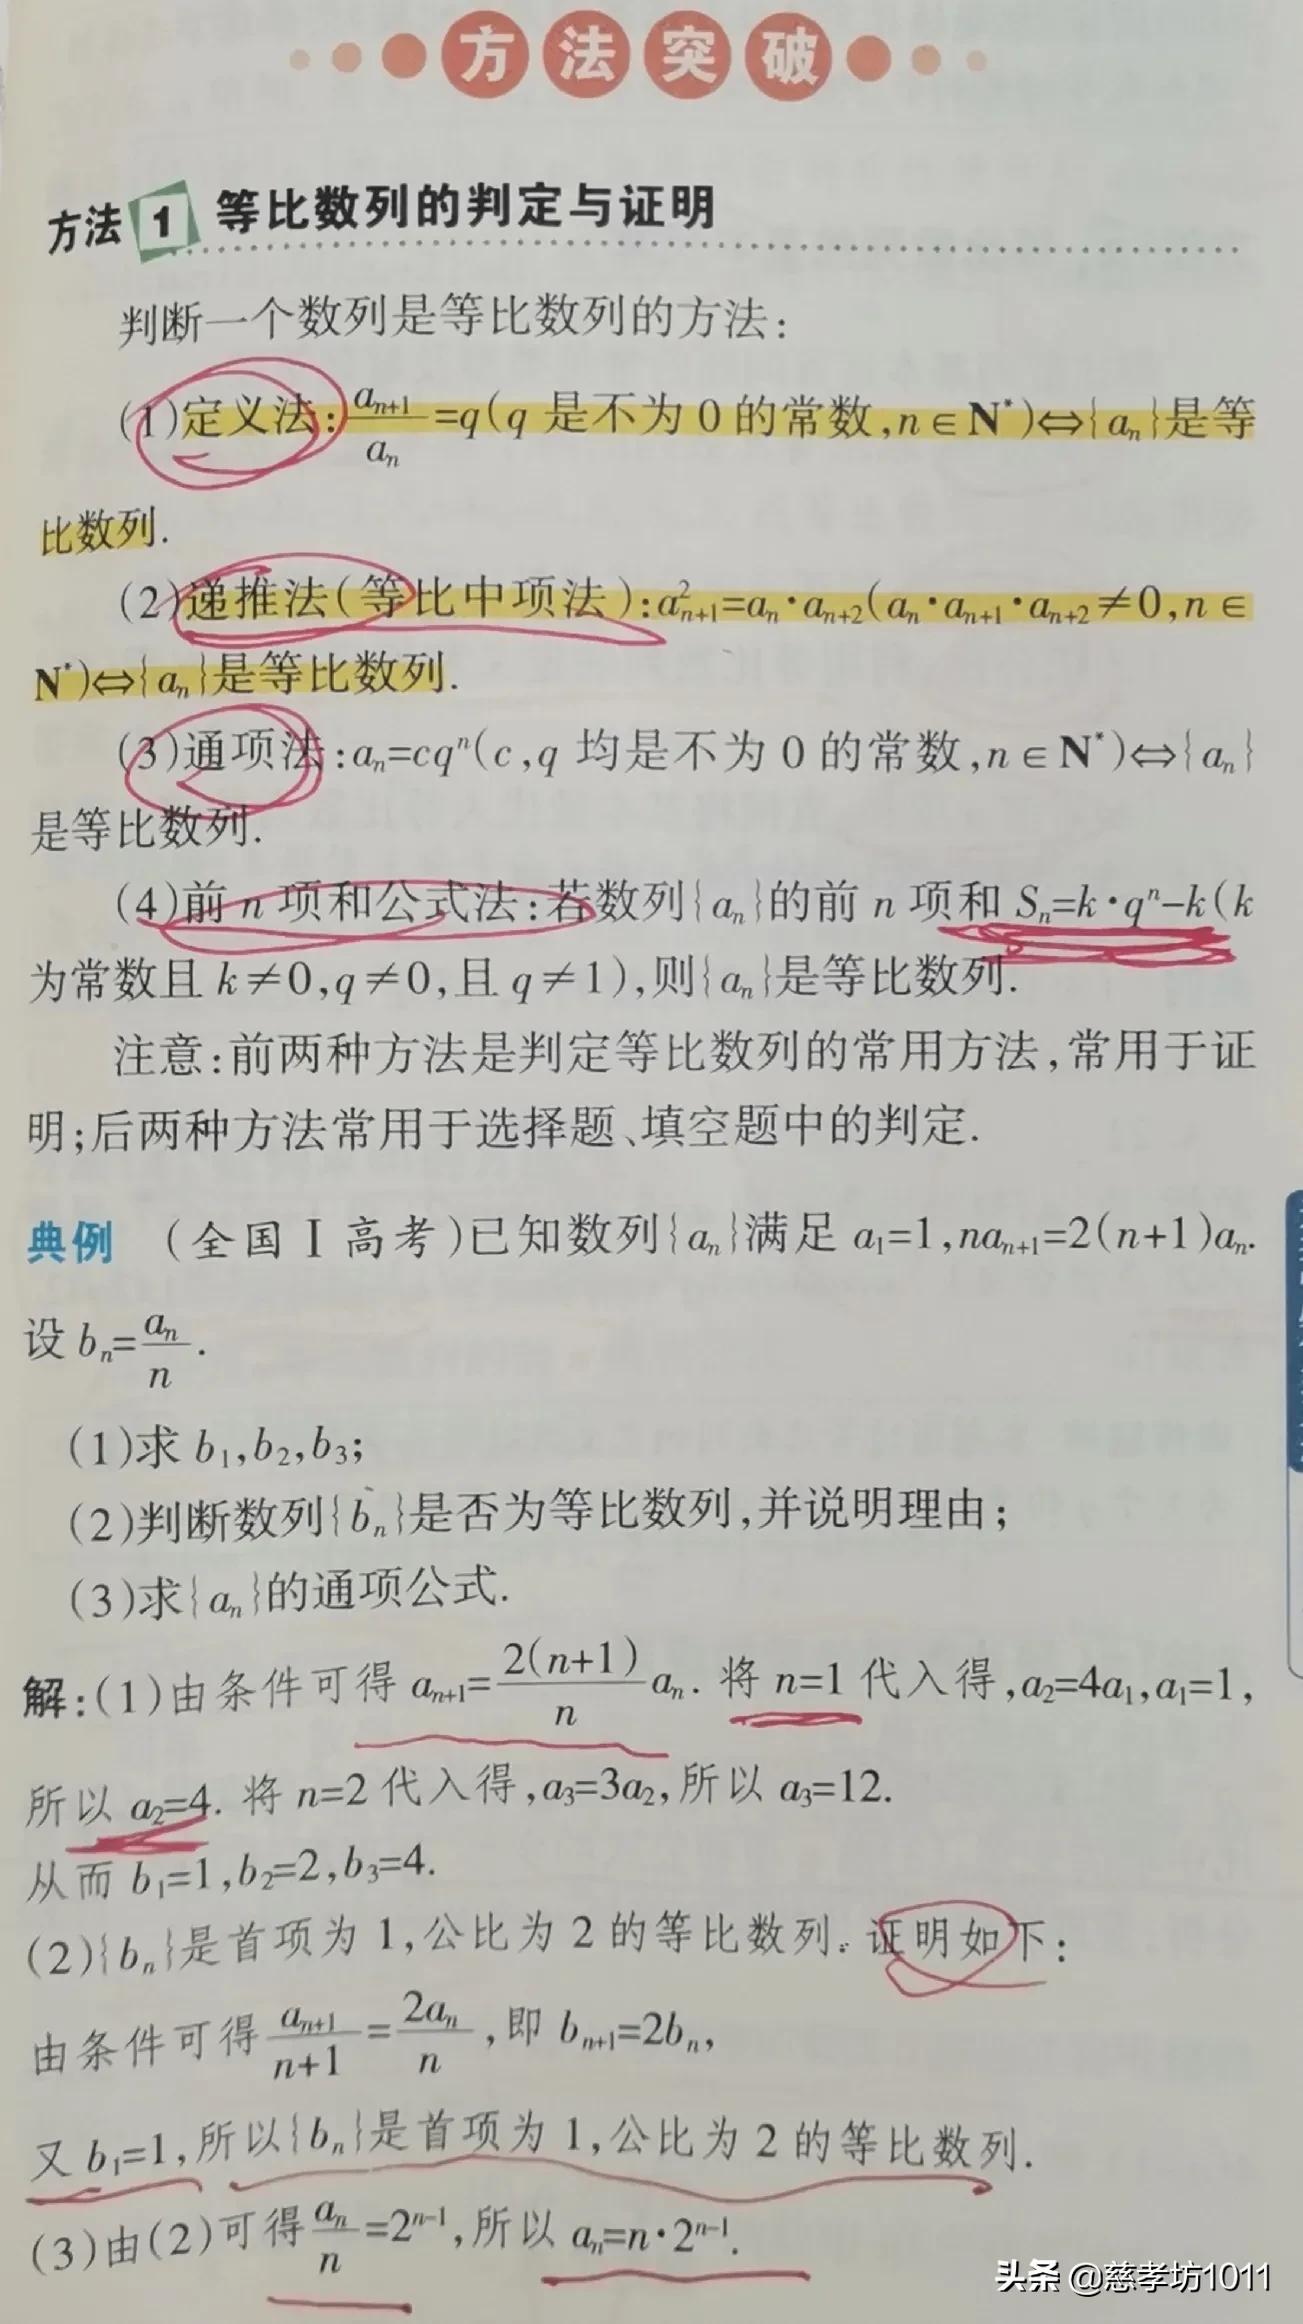 方法突破
方法 1 等比数列的判定与证明
判断一个数列是等比数列的方法:
(1)定义法:$\frac{a_{n+1}}{a_n}$=q(q 是不为 0 的常数,n∈N*)⇔{aₙ}是等
比数列.
(2)递推法(等比中项法):$a_{n+1}^2$=aₙ·$a_{n+2}$(aₙ·$a_{n+1}$·$a_{n+2}$≠0,n∈
N*)⇔{aₙ}是等比数列.
(3)通项法:aₙ=cqⁿ(c,q 均是不为 0 的常数,n∈N*)⇔{aₙ}
是等比数列.
(4)前 n 项和公式法:若数列{aₙ}的前 n 项和 Sₙ=k·qⁿ-k(k
为常数且 k≠0,q≠0,且 q≠1),则{aₙ}是等比数列.
注意:前两种方法是判定等比数列的常用方法,常用于证
明;后两种方法常用于选择题、填空题中的判定.
典例 (全国Ⅰ高考)已知数列{aₙ}满足 a₁=1,n$a_{n+1}$=2(n+1)aₙ.
设 bₙ=$\frac{a_n}{n}$.
(1)求 b₁,b₂,b₃;
(2)判断数列{bₙ}是否为等比数列,并说明理由;
(3)求{aₙ}的通项公式.
解:(1)由条件可得 $a_{n+1}$=$\frac{2(n+1)}{n}$aₙ. 将 n=1 代入得,a₂=4a₁,a₁=1,
所以 a₂=4. 将 n=2 代入得,a₃=3a₂,所以 a₃=12.
从而 b₁=1,b₂=2,b₃=4.
(2){bₙ}是首项为 1,公比为 2 的等比数列. 证明如下:
由条件可得$\frac{a_{n+1}}{n+1}$=$\frac{2a_n}{n}$,即 $b_{n+1}$=2bₙ,
又 b₁=1,所以{bₙ}是首项为 1,公比为 2 的等比数列.
(3)由(2)可得$\frac{a_n}{n}$=$2^{n-1}$,所以 aₙ=n·$2^{n-1}$.
头条 @慈孝坊1011